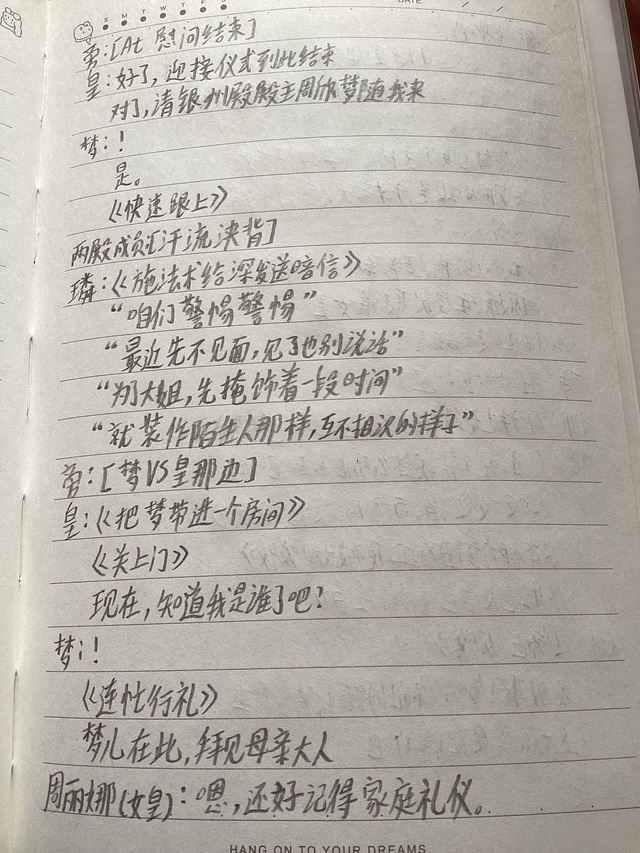 S M T W T F S
DATE / /
旁:[At 慰问结束]
皇:好了,迎接仪式到此结束
对了,请银州殿殿主周欣梦随我来
梦:!
是。
《快速跟上》
两殿成员[汗流浃背]
璘:《施法术给深发送暗信》
“咱们警惕警惕”
“最近先不见面,见了也别说话”
“为了大姐,先掩饰着一段时间”
“就装作陌生人那样,互不相识的样子”
旁:[梦VS皇那边]
皇:《把梦带进一个房间》
《关上门》
现在,知道我是谁了吧?
梦:!
《连忙行礼》
梦儿在此,拜见母亲大人
周丽娜(女皇):嗯,还好记得家庭礼仪。
HANG ON TO YOUR DREAMS